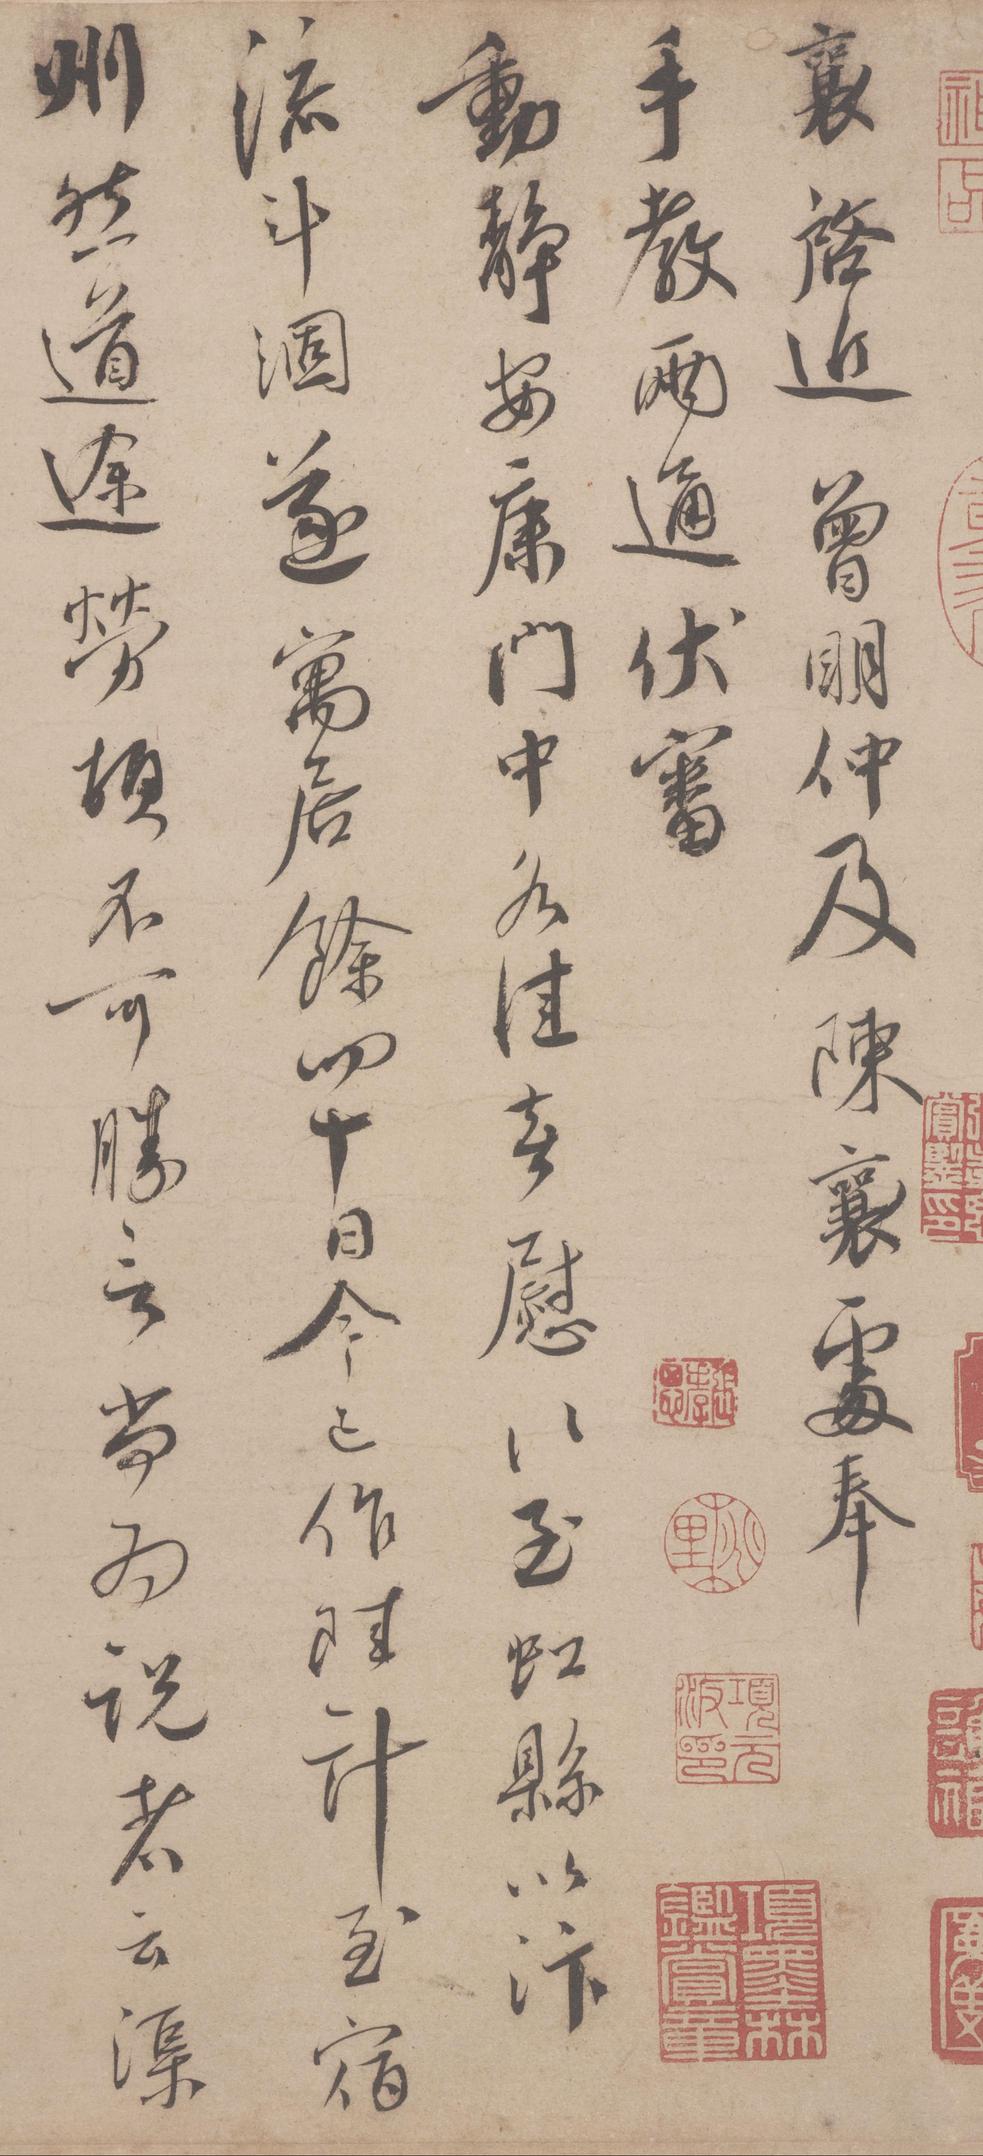 襄啓近曾明仲及陳襄處奉
手教兩通伏審
動靜安康門中各佳喜慰以至虹縣以汴
流斗涸遂寓居餘四十日今已作陸計至宿
州然道途勞頓不可勝言尚為說者云渠
項元汴印
項墨林鑑賞章